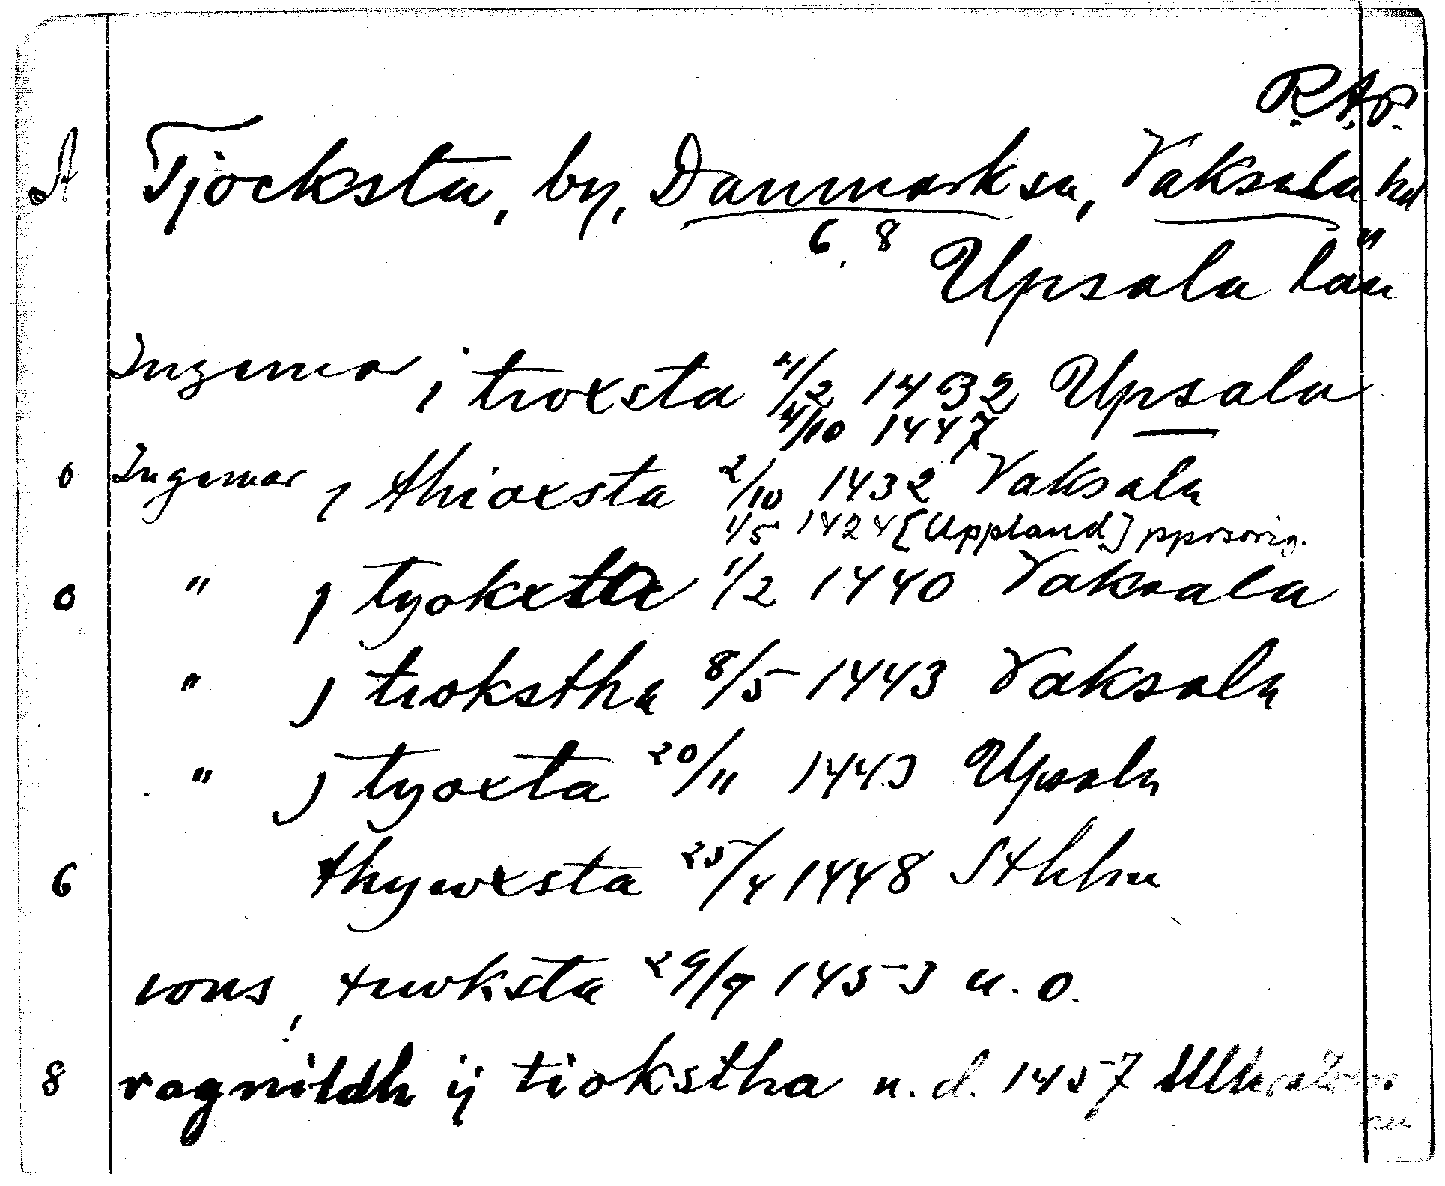 R.A.P.
A Tjocksta, by, Danmark sn, Vaksala hd
6. 8 Upsala län
Ingemar i tioxsta 4/2 1432 Upsala
4/10 1447
0 Ingemar j thioxsta 2/10 1432 Vaksala
1/5 1424 [Uppland] pprsorig.
0 " j tyoksta 1/2 1440 Vaksala
" j tiokstha 8/5 1443 Vaksala
" j tyoxta 20/11 1443 Upsala
6 thywxsta 25/4 1448 Sthlm
ions, tiwksta 29/9 1453 u. o.
8 ragnildh ij tiokstha u. d. 1457